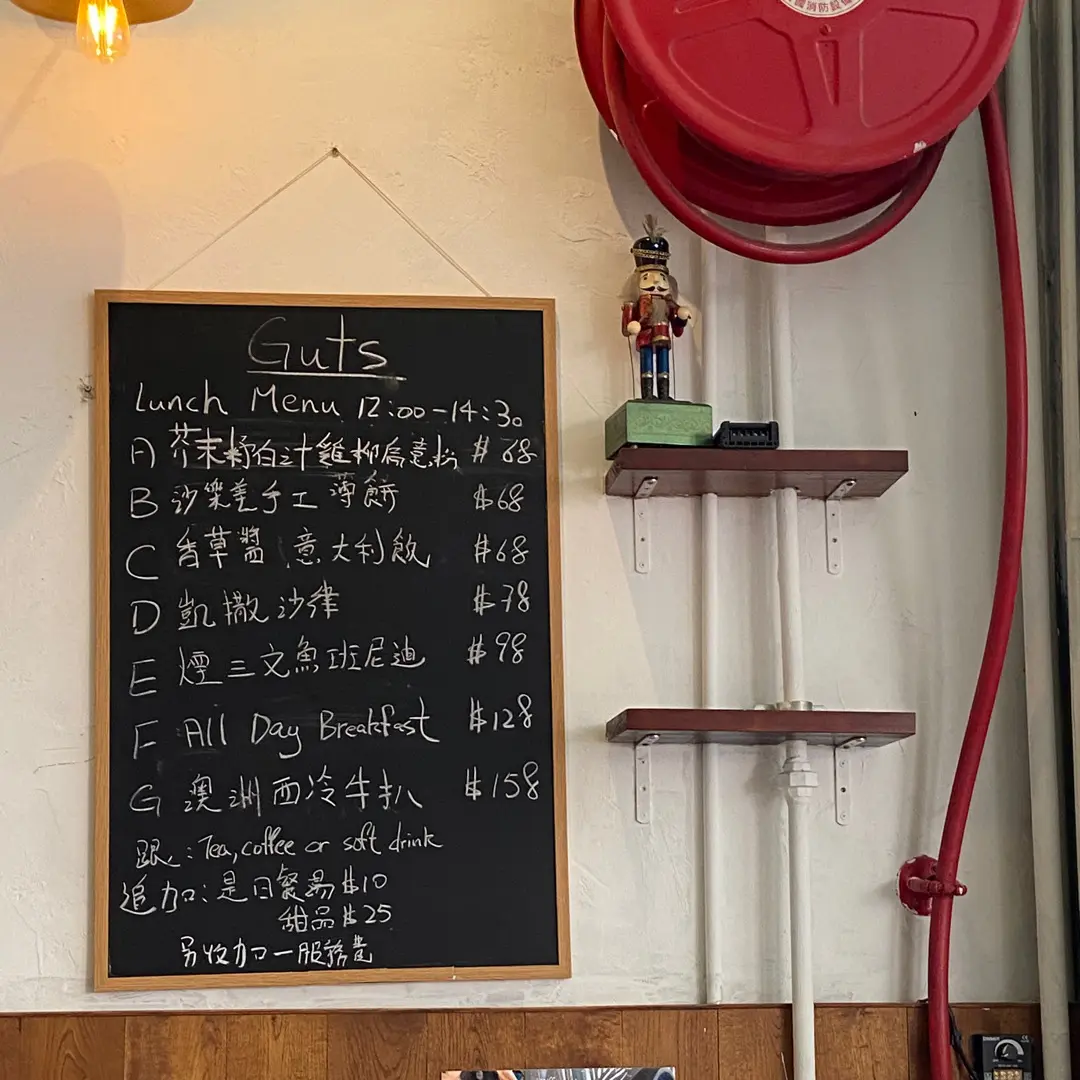 Guts
Lunch Menu 12:00-14:30
A 芥末籽白汁雞柳扁意粉 $68
B 沙樂美手工薄餅 $68
C 香草醬意大利飯 $68
D 凱撒沙律 $78
E 煙三文魚班尼迪 $98
F All Day Breakfast $128
G 澳洲西冷牛扒 $158
跟:Tea, coffee or soft drink
追加:是日餐湯 $10
甜品 $25
另收加一服務費